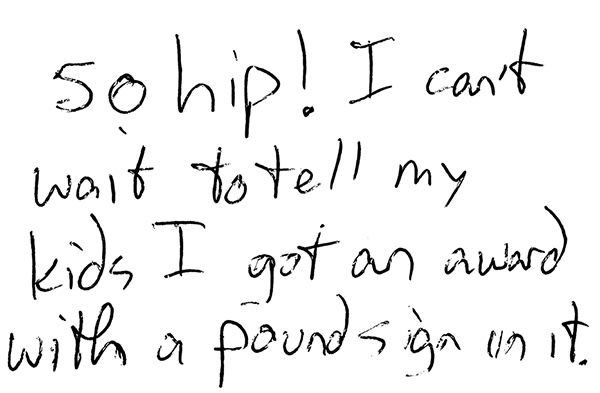 So hip! I can't
wait to tell my
kids I got an award
with a pound sign in it.